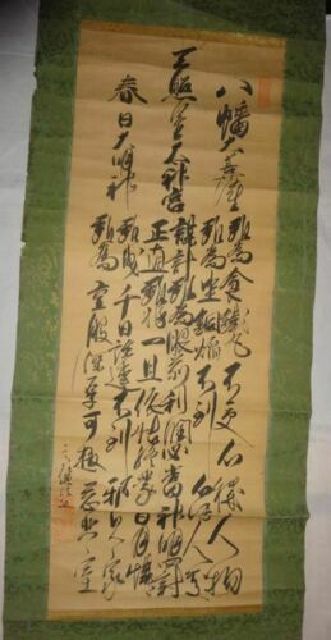 八幡大菩薩
雖為食鐵丸不受心穢人物
雖為坐銅焔不到心濁人處
天照皇大神宮
謀計雖為眼前利潤必當神明罰
正直雖非一旦依怙終蒙日月憐
春日大明神
雖曳千日注連不到邪見家
雖為重服深厚可趣慈悲室